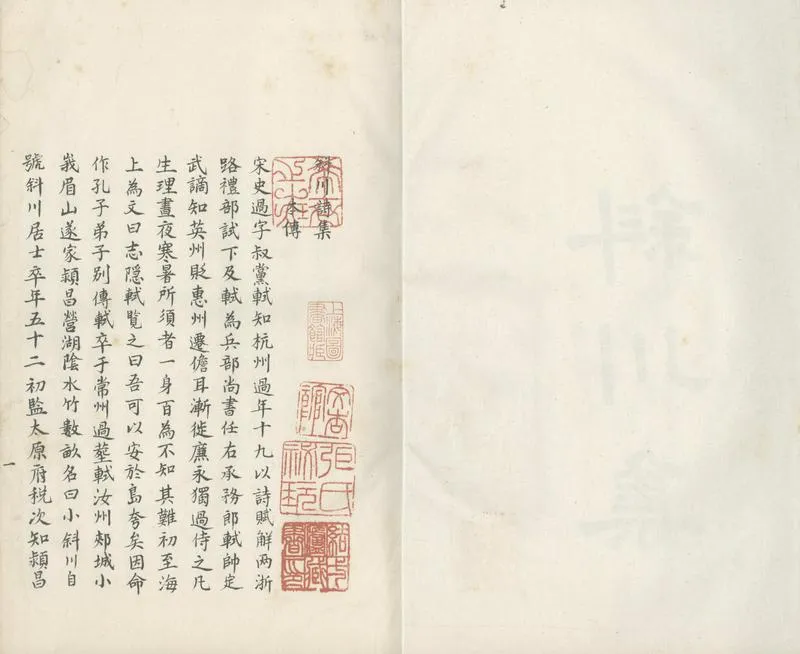 斜川集
斜川詩集
本傳
上海圖書館藏
宋史過字叔黨軾知杭州過年十九以詩賦解两浙
路禮部試下及軾為兵部尚書任右承務郎軾帥定
武謫知英州貶惠州遷儋耳漸徙廉永獨過侍之凡
生理晝夜寒暑所須者一身百為不知其難初至海
上為文曰志隱軾覽之曰吾可以安於島夸矣因命
作孔子弟子別傳軾卒于常州過塟軾汝州郟城小
峩眉山遂家潁昌營湖陰水竹數畝名曰小斜川自
號斜川居士卒年五十二初監太原府税次知潁昌
一